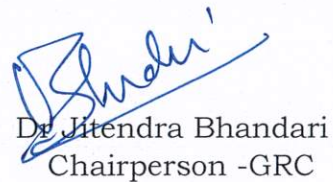 Dr Jitendra Bhandari
Chairperson -GRC